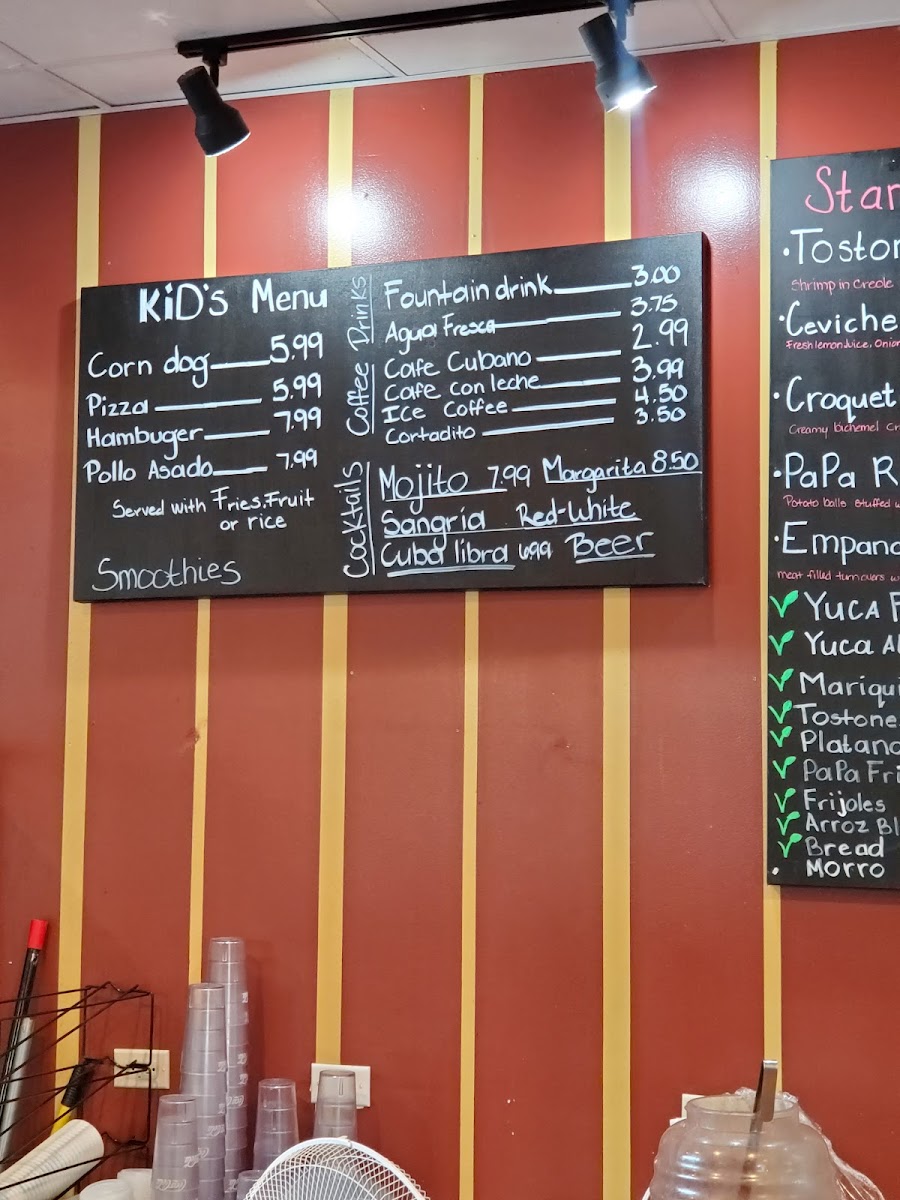 KiD's Menu
Corn dog 5.99
Pizza 5.99
Hambuger 7.99
Pollo Asado 7.99
Served with Fries, Fruit
or rice
Smoothies
Coffee Drinks
Fountain drink 3.00
Agua Fresca 3.75
Cafe Cubano 2.99
Cafe con leche 3.99
Ice Coffee 4.50
Cortadito 3.50
Cocktails
Mojito 7.99 Margarita 8.50
Sangria Red-White
Cuba libra 6.99 Beer
Star
·Toston
Shrimp in Creole
·Ceviche
Fresh lemon Juice, Onion
·Croquet
Creamy bichemel Cr
·PaPa R
Potato balls stuffed w
·Empana
meat filled turnovers w
Yuca F
Yuca Al
Mariqui
Tostone
Platano
PaPa Fri
Frijoles
Arroz Bl
Bread
· MORRO